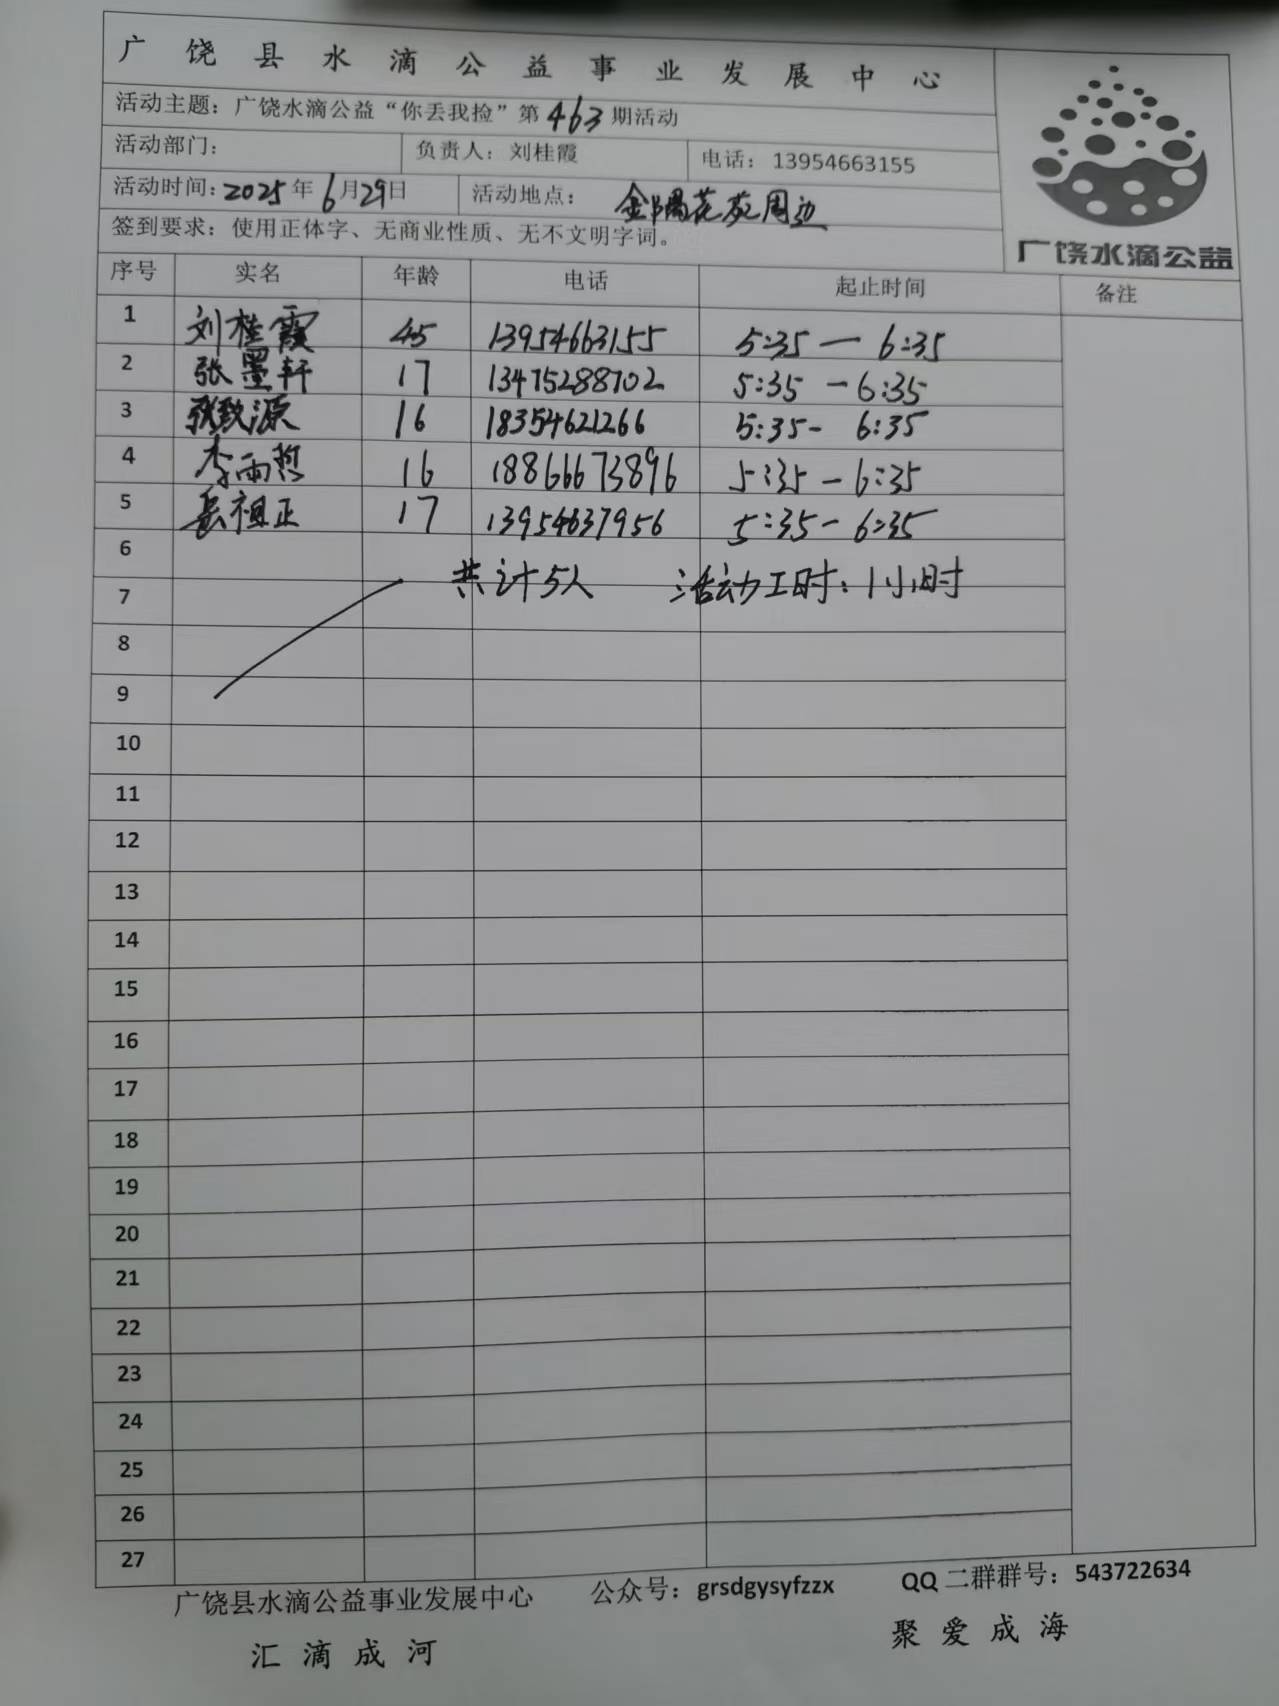 广饶县水滴公益事业发展中心
活动主题：广饶水滴公益“你丢我捡”第463期活动
活动部门： 负责人：刘桂霞 电话：13954663155
活动时间：2025年6月29日 活动地点：金隅花苑周边
签到要求：使用正体字、无商业性质、无不文明字词。
广饶水滴公益
序号 实名 年龄 电话 起止时间 备注
1 刘桂霞 45 13954663155 5:35—6:35
2 张墨轩 17 13475288702 5:35-6:35
3 张致源 16 18354621266 5:35-6:35
4 李雨哲 16 18866673896 5:35-6:35
5 岳祖正 17 13954637956 5:35-6:35
6
共计5人 活动工时：1小时
7
8
9
10
11
12
13
14
15
16
17
18
19
20
21
22
23
24
25
26
27
广饶县水滴公益事业发展中心 公众号：grsdgysyfzzx QQ二群群号：543722634
汇滴成河 聚爱成海